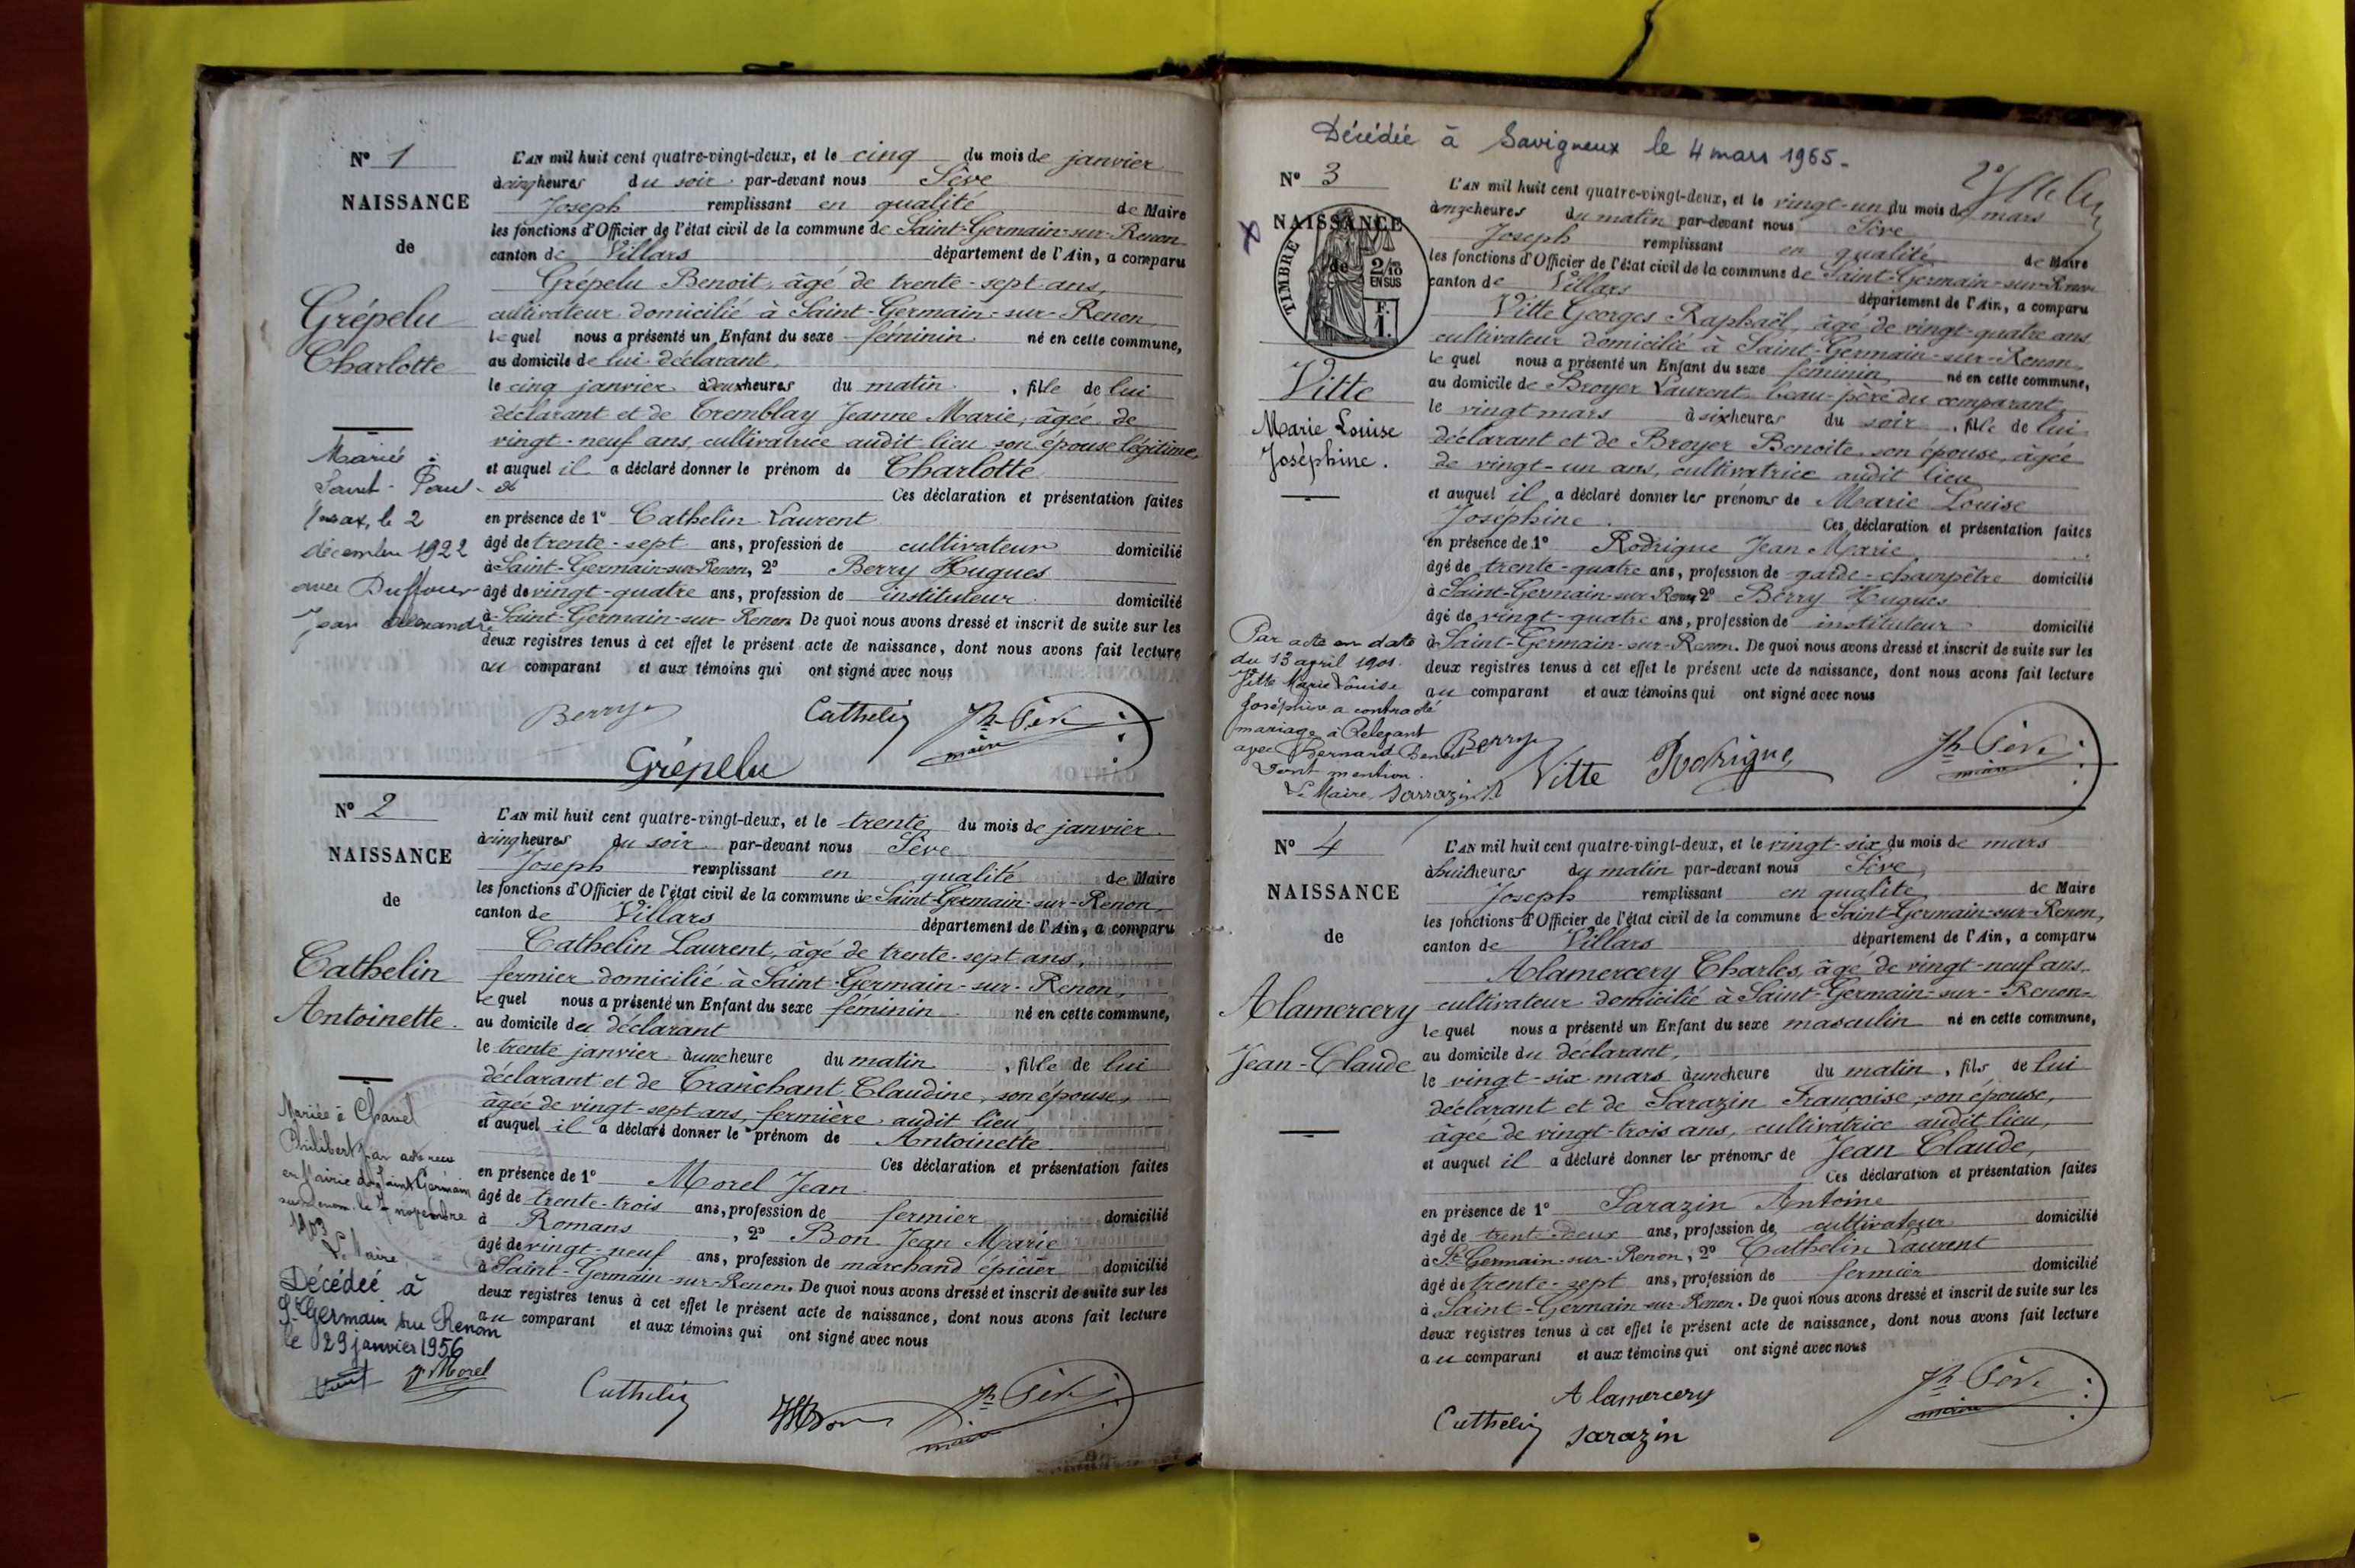 N° 1
NAISSANCE
de
Grépelu
Charlotte
Mariée à
Saint-Paul-de
le 2
décembre 1922
avec Duffour
Jean Alexandre
L'AN mil huit cent quatre-vingt-deux, et le cinq du mois de janvier
à cinq heures du soir par-devant nous Sève
Joseph remplissant en qualité de Maire
les fonctions d'Officier de l'état civil de la commune de Saint-Germain-sur-Renon
canton de Villars département de l'Ain, a comparu
Grépelu Benoit, âgé de trente-sept ans,
cultivateur domicilié à Saint-Germain-sur-Renon
lequel nous a présenté un Enfant du sexe féminin né en cette commune,
au domicile de lui déclarant
le cinq janvier à deux heures du matin, fille de lui
déclarant et de Tremblay Jeanne Marie, âgée de
vingt-neuf ans, cultivatrice audit lieu, son épouse légitime,
et auquel il a déclaré donner le prénom de Charlotte
Ces déclaration et présentation faites
en présence de 1° Cathelin Laurent
âgé de trente-sept ans, profession de cultivateur domicilié
à Saint-Germain-sur-Renon, 2° Berry Hugues
âgé de vingt-quatre ans, profession de instituteur domicilié
à Saint-Germain-sur-Renon. De quoi nous avons dressé et inscrit de suite sur les
deux registres tenus à cet effet le présent acte de naissance, dont nous avons fait lecture
au comparant et aux témoins qui ont signé avec nous
Berry Cathelin Jh Sève
maire
Grépelu
N° 2
NAISSANCE
de
Cathelin
Antoinette
Mariée à Chanel
Philibert par acte reçu
en Mairie de Saint Germain
sur Renon le 7 novembre
1903
Le Maire
Décédée à
St Germain sur Renon
le 29 janvier 1956
Morel
L'AN mil huit cent quatre-vingt-deux, et le trente du mois de janvier
à cinq heures du soir par-devant nous Sève
Joseph remplissant en qualité de Maire
les fonctions d'Officier de l'état civil de la commune de Saint-Germain-sur-Renon
canton de Villars département de l'Ain, a comparu
Cathelin Laurent, âgé de trente-sept ans,
fermier domicilié à Saint-Germain-sur-Renon,
lequel nous a présenté un Enfant du sexe féminin né en cette commune,
au domicile du déclarant
le trente janvier à une heure du matin, fille de lui
déclarant et de Tranchant Claudine, son épouse,
âgée de vingt-sept ans, fermière audit lieu
et auquel il a déclaré donner le prénom de Antoinette
Ces déclaration et présentation faites
en présence de 1° Morel Jean
âgé de trente-trois ans, profession de fermier domicilié
à Romans, 2° Bon Jean Marie
âgé de vingt-neuf ans, profession de marchand épicier domicilié
à Saint-Germain-sur-Renon. De quoi nous avons dressé et inscrit de suite sur les
deux registres tenus à cet effet le présent acte de naissance, dont nous avons fait lecture
au comparant et aux témoins qui ont signé avec nous
Cathelin Jh Sève
maire
Décédée à Savigneux le 4 mars 1965.
N° 3
NAISSANCE
de
TIMBRE
2/10
EN SUS
F.
1.
Vitte
Marie Louise
Joséphine.
Par acte en date
du 13 april 1901.
Vitte Marie Louise
Joséphine a contracté
mariage à Relevant
avec Bernard Benoit
Dont mention.
Le Maire, Sarrazin
L'AN mil huit cent quatre-vingt-deux, et le vingt-un du mois de mars
à onze heures du matin par-devant nous Sève
Joseph remplissant en qualité de Maire
les fonctions d'Officier de l'état civil de la commune de Saint-Germain-sur-Renon
canton de Villars département de l'Ain, a comparu
Vitte Georges Raphaël, âgé de vingt-quatre ans
cultivateur domicilié à Saint-Germain-sur-Renon,
lequel nous a présenté un Enfant du sexe féminin né en cette commune,
au domicile de Broyer Laurent beau-père du comparant,
le vingt mars à six heures du soir, fille de lui
déclarant et de Broyer Benoite, son épouse, âgée
de vingt-un ans, cultivatrice audit lieu
et auquel il a déclaré donner les prénoms de Marie Louise
Joséphine. Ces déclaration et présentation faites
en présence de 1° Rodrigue Jean Marie
âgé de trente-quatre ans, profession de garde-champêtre domicilié
à Saint-Germain-sur-Renon, 2° Berry Hugues
âgé de vingt-quatre ans, profession de instituteur domicilié
à Saint-Germain-sur-Renon. De quoi nous avons dressé et inscrit de suite sur les
deux registres tenus à cet effet le présent acte de naissance, dont nous avons fait lecture
au comparant et aux témoins qui ont signé avec nous
Berry Vitte Rodrigue Jh Sève
maire
N° 4
NAISSANCE
de
Alamercery
Jean-Claude
L'AN mil huit cent quatre-vingt-deux, et le vingt-six du mois de mars
à huit heures du matin par-devant nous Sève,
Joseph remplissant en qualité de Maire
les fonctions d'Officier de l'état civil de la commune de Saint-Germain-sur-Renon,
canton de Villars département de l'Ain, a comparu
Alamercery Charles, âgé de vingt-neuf ans,
cultivateur domicilié à Saint-Germain-sur-Renon
lequel nous a présenté un Enfant du sexe masculin né en cette commune,
au domicile du déclarant,
le vingt-six mars à une heure du matin, fils de lui
déclarant et de Sarazin Françoise, son épouse,
âgée de vingt-trois ans, cultivatrice audit lieu,
et auquel il a déclaré donner les prénoms de Jean Claude,
Ces déclaration et présentation faites
en présence de 1° Sarazin Antoine
âgé de trente-deux ans, profession de cultivateur domicilié
à St Germain-sur-Renon, 2° Cathelin Laurent
âgé de trente-sept ans, profession de fermier domicilié
à Saint-Germain-sur-Renon. De quoi nous avons dressé et inscrit de suite sur les
deux registres tenus à cet effet le présent acte de naissance, dont nous avons fait lecture
au comparant et aux témoins qui ont signé avec nous
Alamercery Jh Sève
maire
Cathelin Sarazin